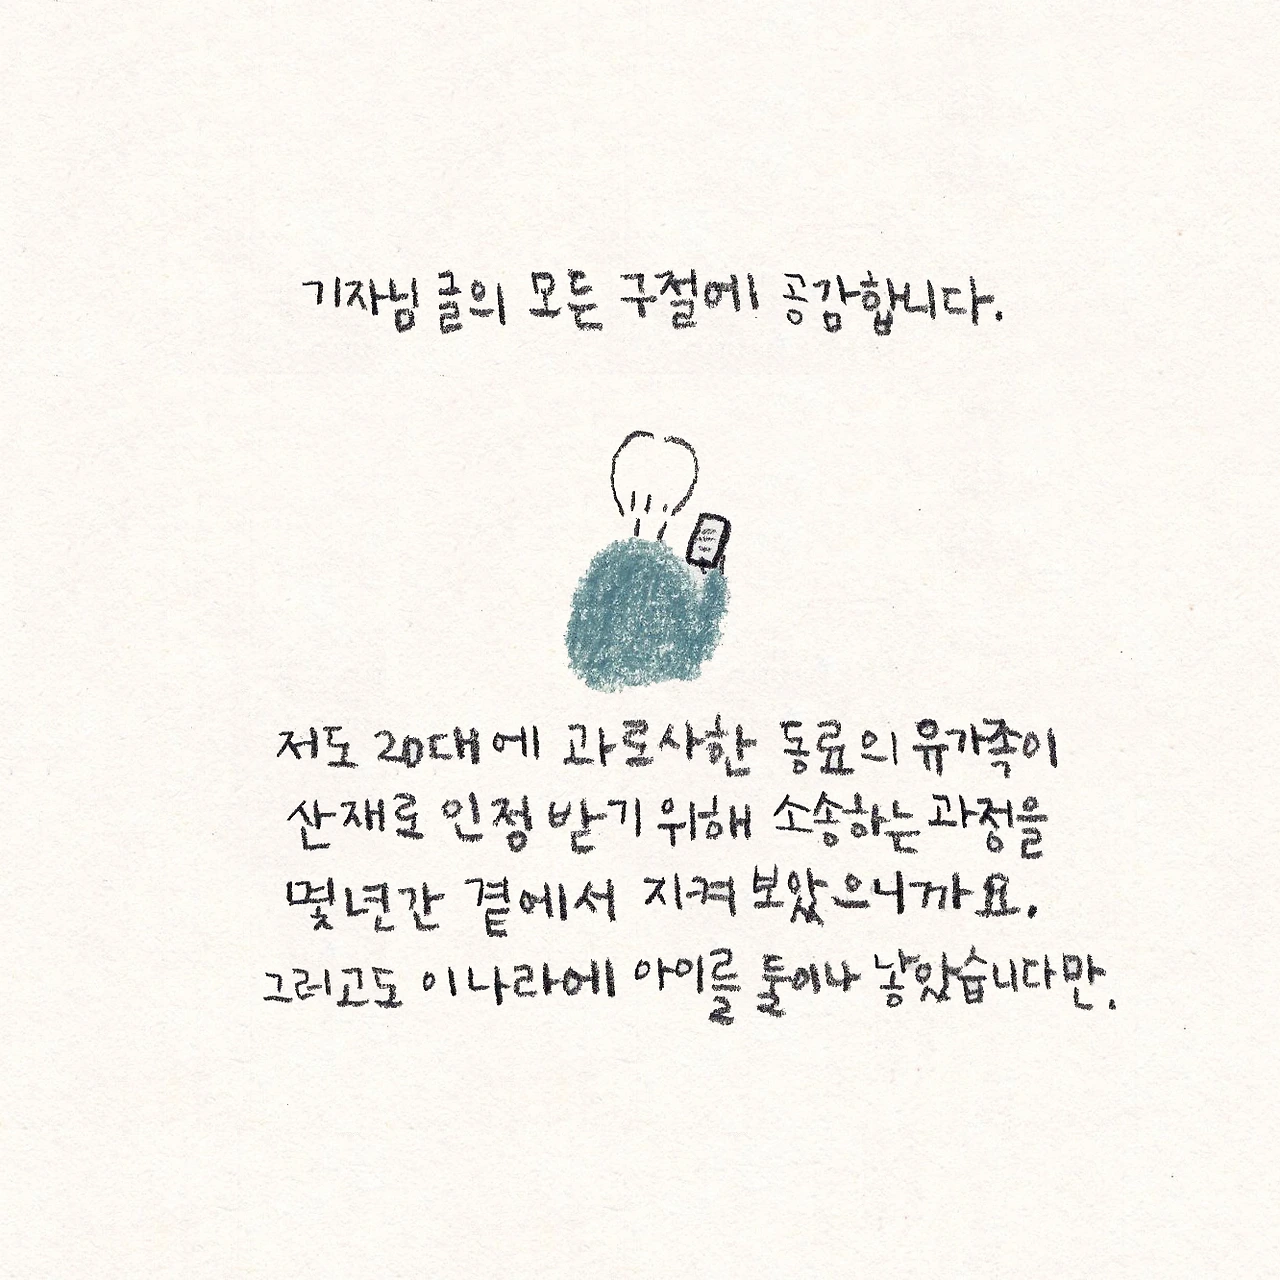 기자님 글의 모든 구절에 공감합니다.
저도 20대에 과로사한 동료의 유가족이
산재로 인정 받기 위해 소송하는 과정을
몇 년간 곁에서 지켜 보았으니까요.
그러고도 이 나라에 아이를 둘이나 낳았습니다만.